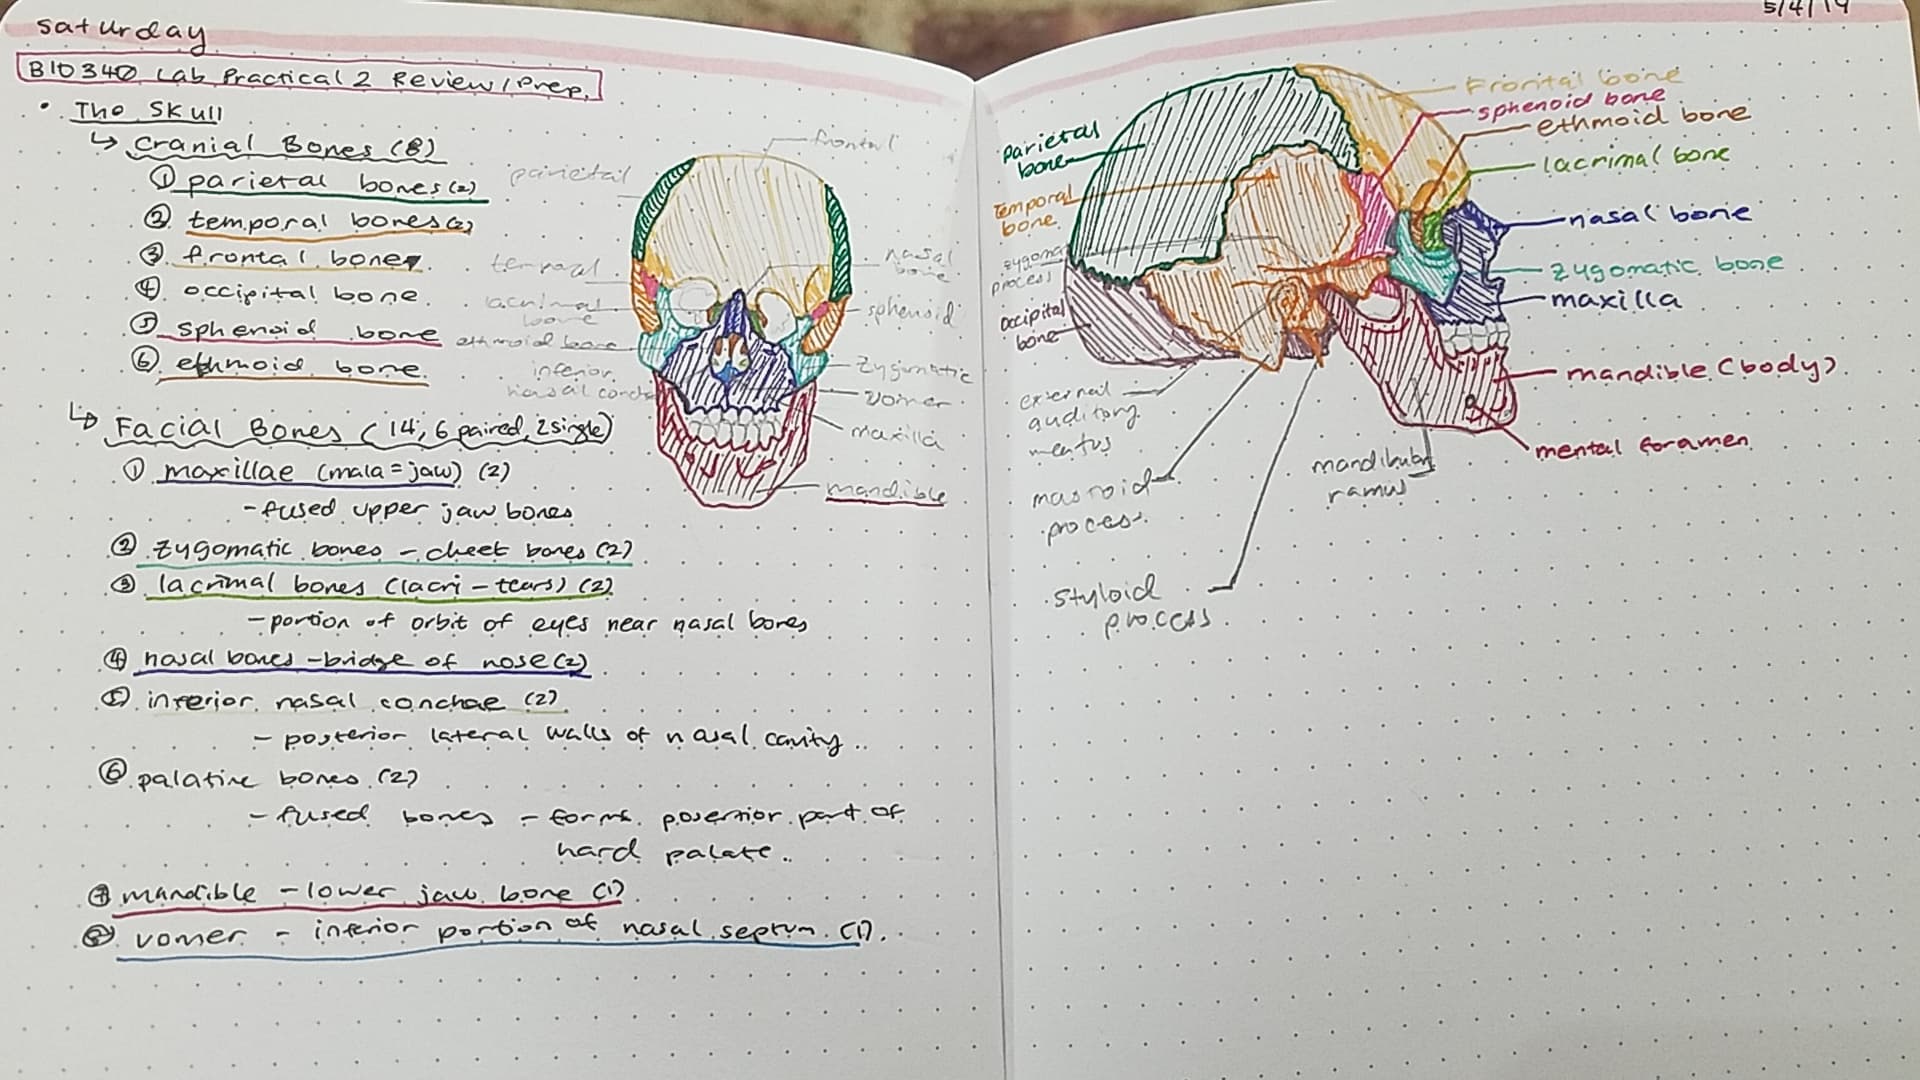 saturday
BIO340 Lab Practical 2 Review/Prep.
• The Skull
↳ Cranial Bones (8)
① parietal bones (2)
② temporal bones (2)
③ frontal bone
④ occipital bone.
⑤ sphenoid bone
⑥ ethmoid bone.
↳ Facial Bones (14, 6 paired, 2 single)
① maxillae (mala = jaw) (2)
- fused upper jaw bones
② zygomatic bones - cheek bones (2)
③ lacrimal bones (lacri - tears) (2)
- portion of orbit of eyes near nasal bones
④ nasal bones - bridge of nose (2)
⑤ inferior nasal conchae (2)
- posterior lateral walls of nasal cavity..
⑥ palatine bones (2)
- fused bones - forms posertior part of
hard palate..
⑦ mandible - lower jaw bone (1)
⑧ vomer - inferior portion of nasal septum (1).
parietal
temporal
lacrimal
bone
ethmoid bone
inferior
nasal concha
frontal
nasal
bone
sphenoid
zygomatic
vomer
maxilla
mandible
5/4/19
parietal
bone
temporal
bone
zygoma
process
occipital
bone
external
auditory
meatus
mastoid
process.
styloid
process.
mandibular
ramus
Frontal bone
sphenoid bone
ethmoid bone
lacrimal bone
nasal bone
zygomatic bone
maxilla
mandible (body)
mental foramen